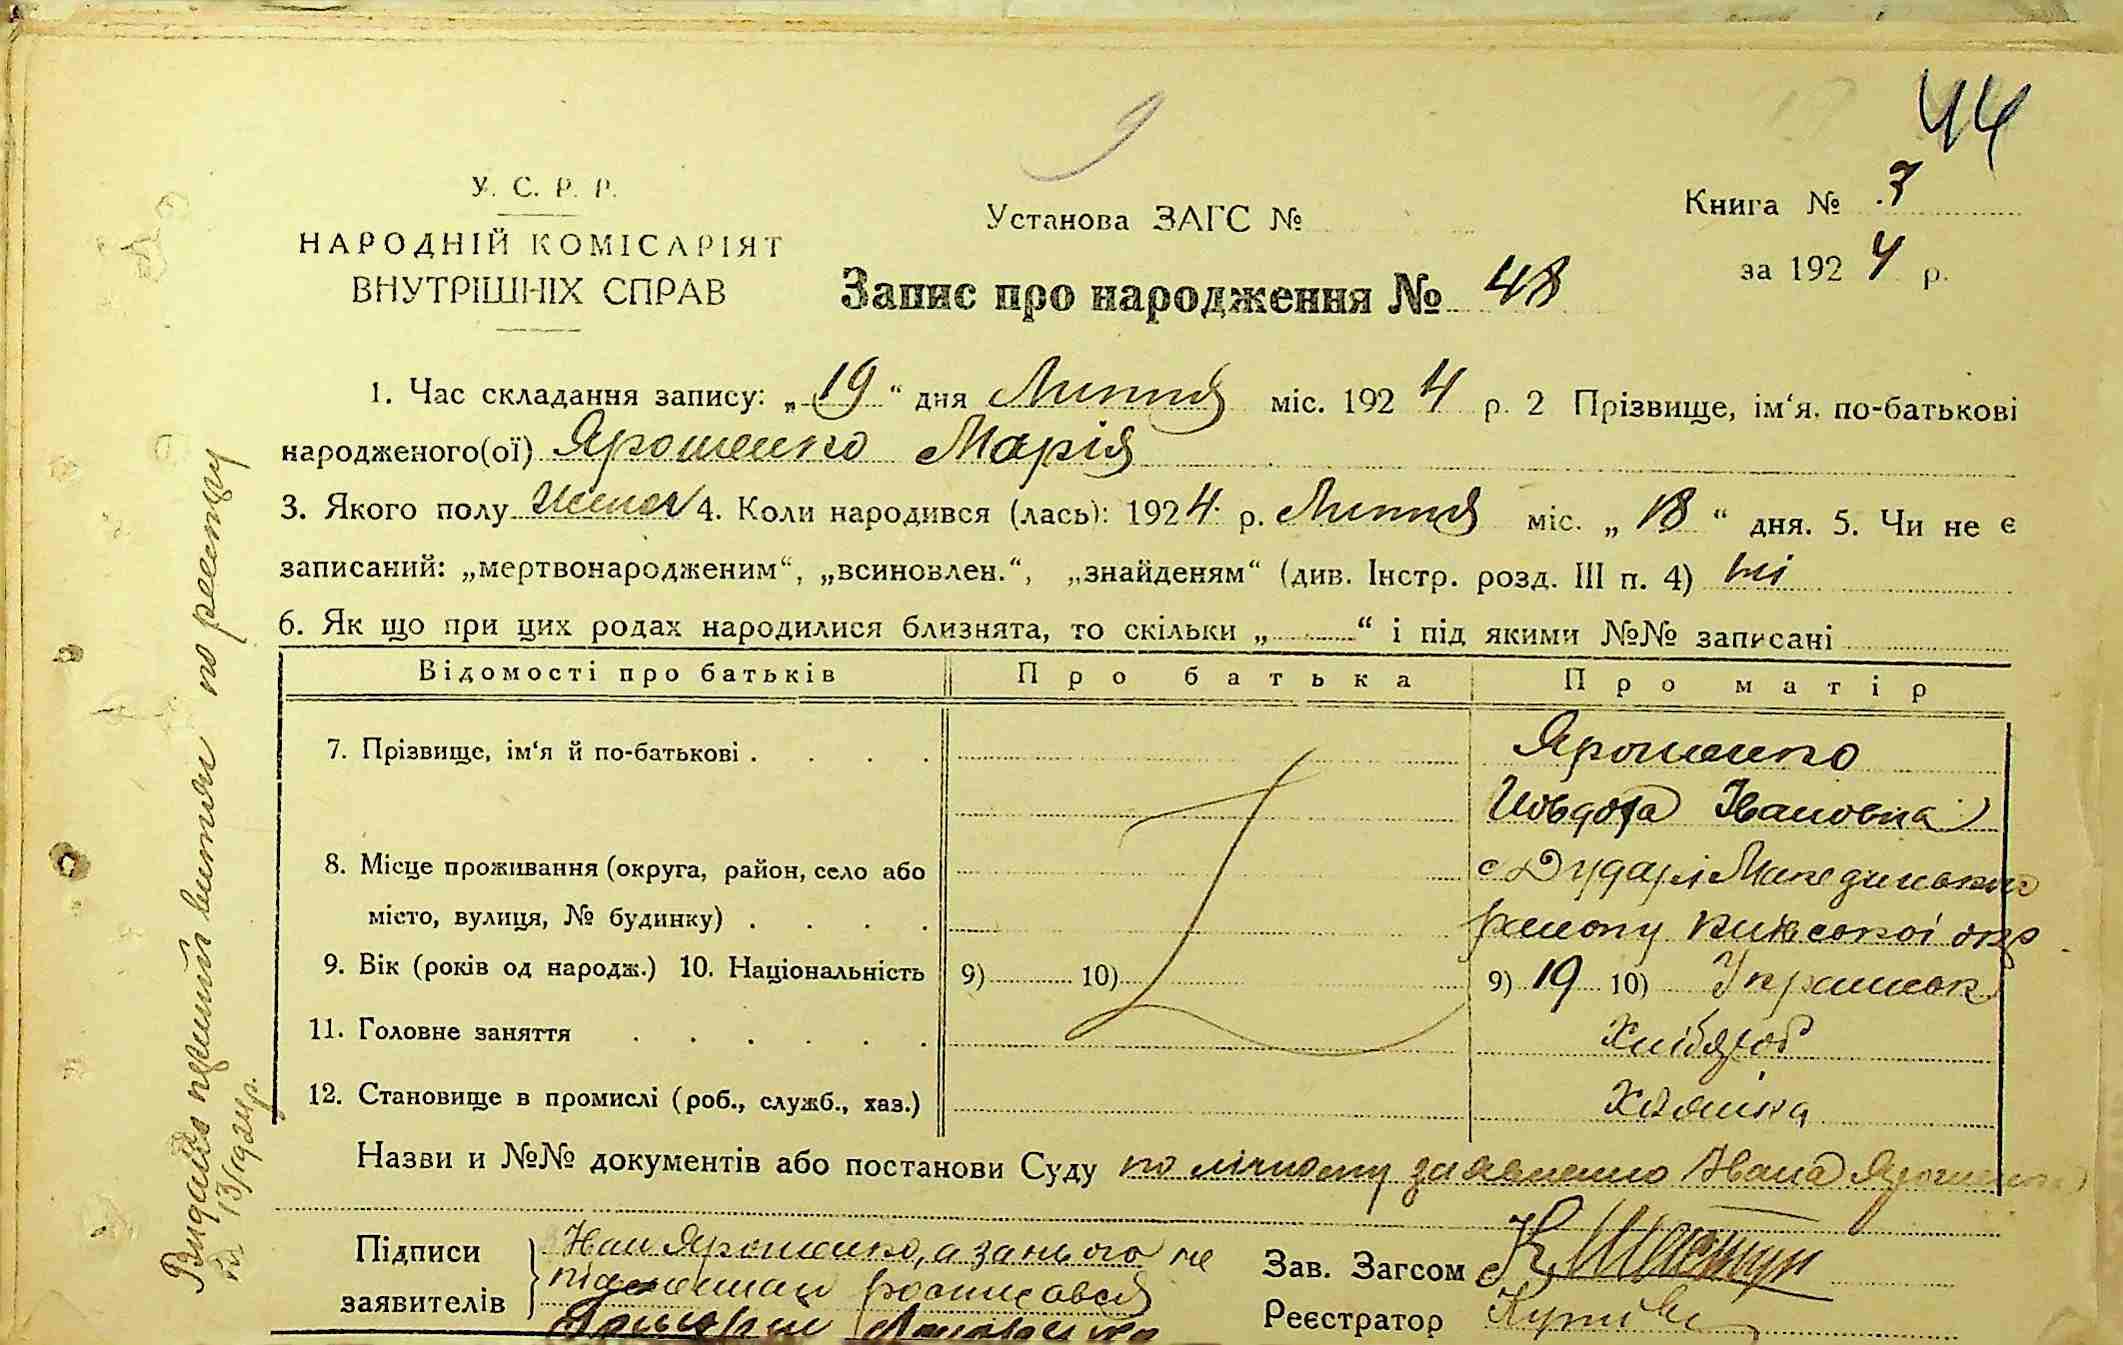 44
У. С. Р. Р.
НАРОДНІЙ КОМІСАРІЯТ
ВНУТРІШНІХ СПРАВ
Установа ЗАГС №
Книга № 7
за 1924 р.
Запис про народження № 48
1. Час складання запису: „19“ дня Липня міс. 1924 р. 2 Прізвище, ім‘я, по-батькові
народженого(ої) Ярошенко Марія
3. Якого полу жіноч 4. Коли народився (лась): 1924 р. Липня міс. „18“ дня. 5. Чи не є
записаний: „мертвонародженим“, „всиновлен.“, „знайденям“ (див. Інстр. розд. III п. 4) ні
6. Як що при цих родах народилися близнята, то скільки „ “ і під якими №№ записані
Відомості про батьків Про батька Про матір
7. Прізвище, ім‘я й по-батькові . . . . Ярошенко
Йовдоха Івановна
8. Місце проживання (округа, район, село або с Дударі
місто, вулиця, № будинку) . . . . району Київської окр
9. Вік (років од народж.) 10. Національність 9) 10) 9) 19 10) Українськ
11. Головне заняття . . . . . . Хлібороб
12. Становище в промислі (роб., служб., хаз.) Хазяйка
Назви и №№ документів або постанови Суду по лічному заявленню Івана Ярошенко
Підписи заявителів Іван Ярошенко, а за нього не
росписався
Зав. Загсом
Реєстратор
по реєстру